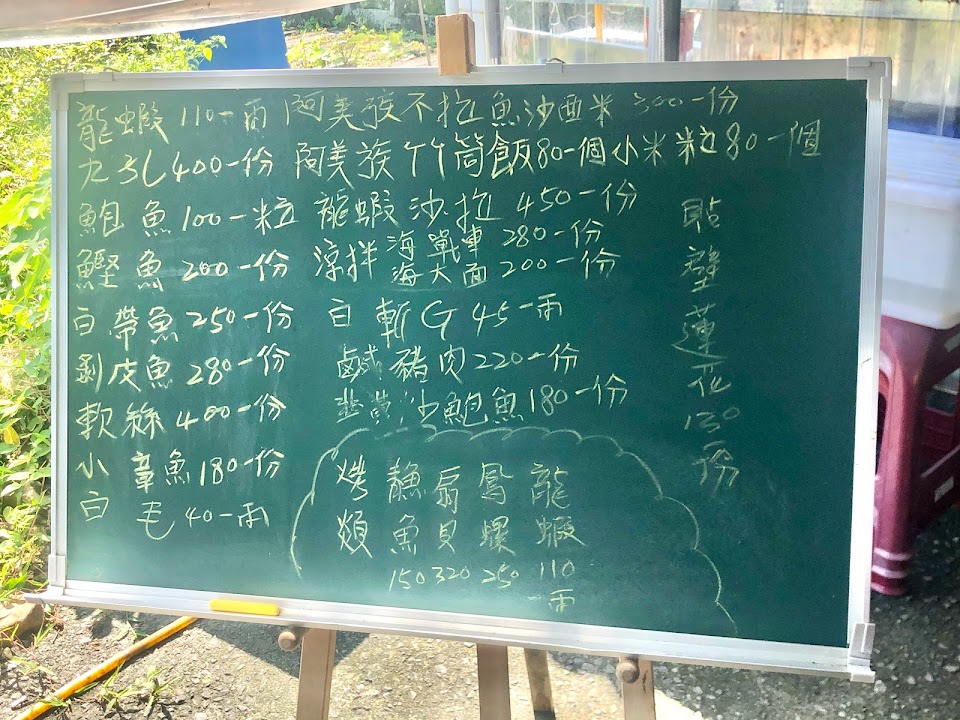 龍蝦 110一兩
九孔 400一份
鮑魚 100一粒
鰹魚 200一份
白帶魚 250一份
剝皮魚 280一份
軟絲 400一份
小章魚 180一份
白毛 40一兩
阿美族不拉魚沙西米 300一份
阿美族竹筒飯80一個小米粒80一個
龍蝦沙拉 450一份
涼拌 海戰車 280一份
海大面 200一份
白斬G 45一兩
鹹豬肉 220一份
韭黃沙鮑魚 180一份
貼壁蓮花 130份
烤類
魚 150
扇貝 320
鳳螺 250
龍蝦 110一兩